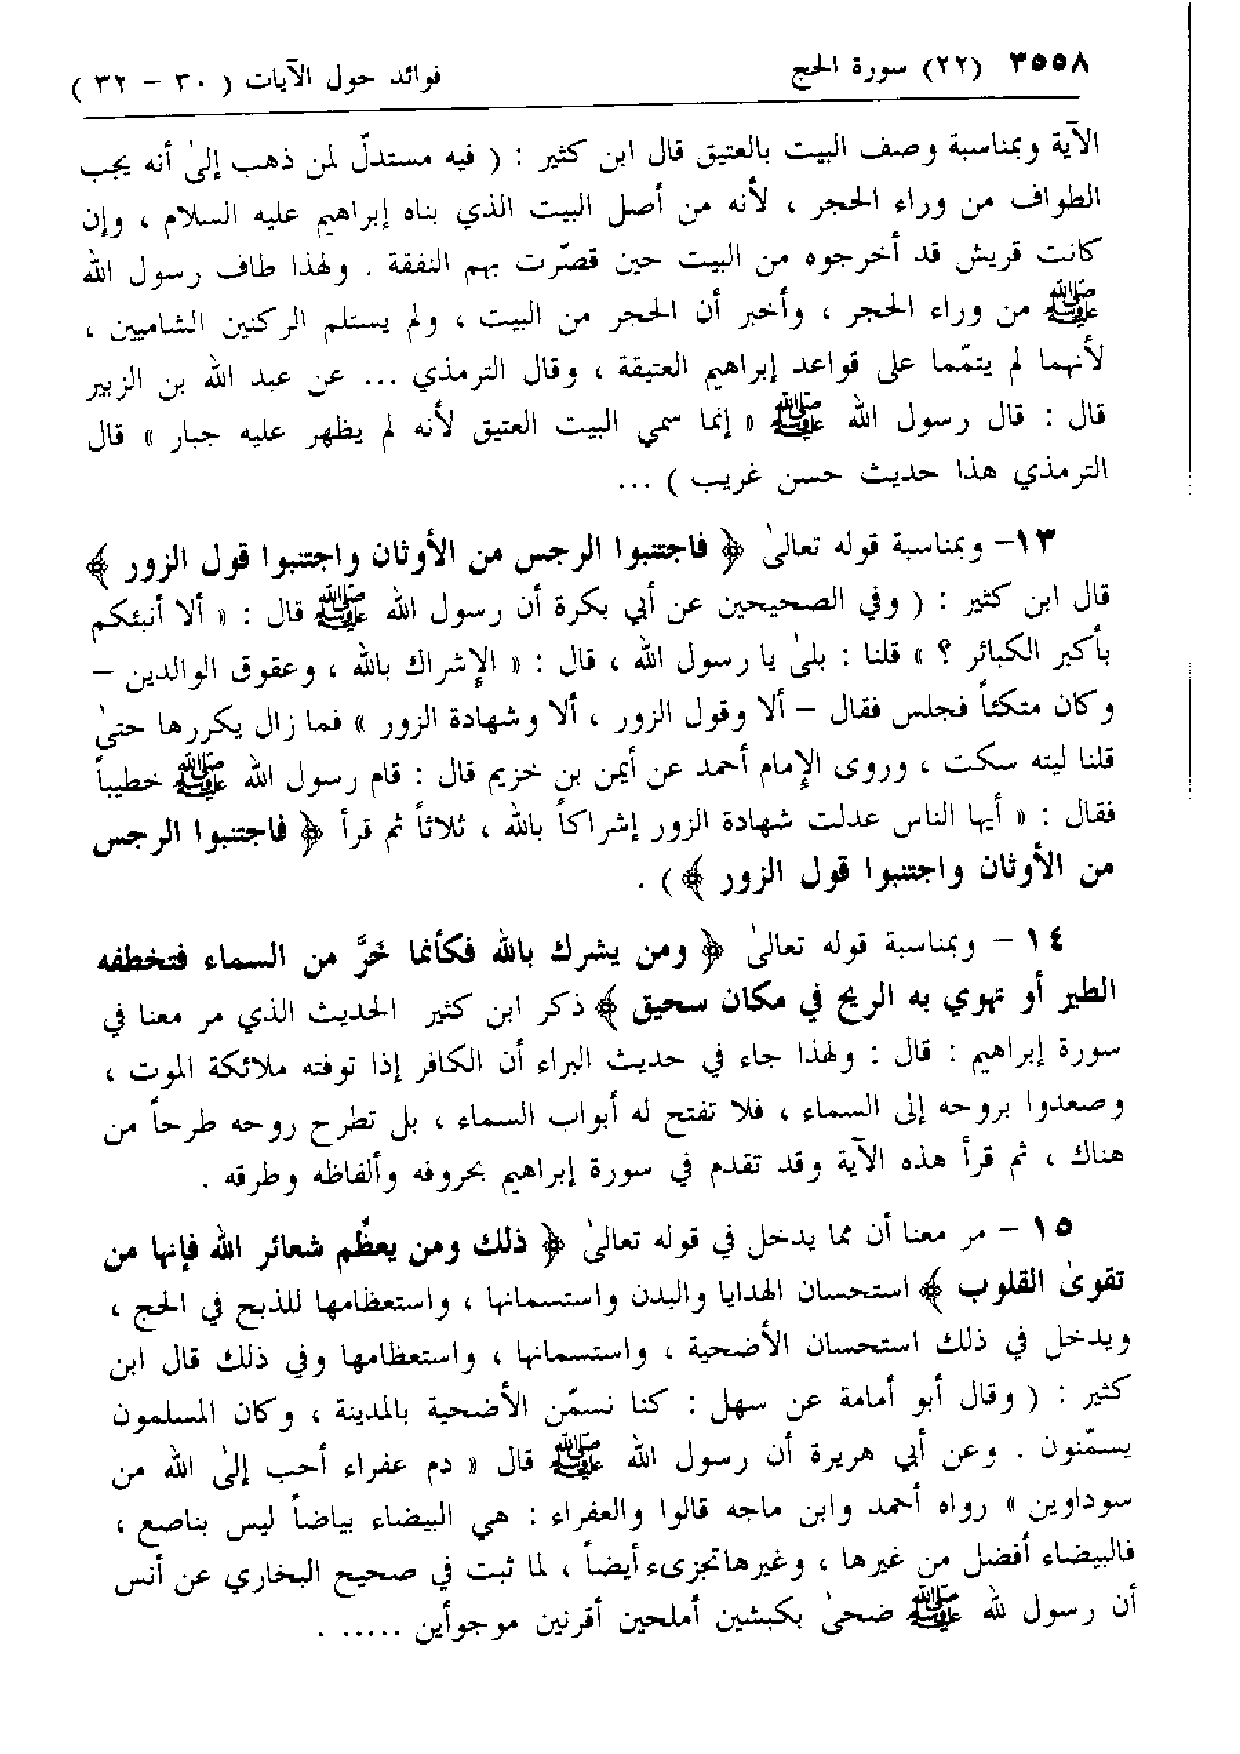 ٣٥٥٨ (٢٢) سورة الحج فوائد حول الآيات ( ٣٠ - ٣٢ )
الآية وبمناسبة وصف البيت بالعتيق قال ابن كثير : ( فيه مستدلّ لمن ذهب إلىٰ أنه يجب
الطواف من وراء الحجر ، لأنه من أصل البيت الذي بناه إبراهيم عليه السلام ، وإن
كانت قريش قد أخرجوه من البيت حين قصّرت بهم النفقة . ولهذا طاف رسول الله
ﷺ من وراء الحجر ، وأخبر أن الحجر من البيت ، ولم يستلم الركنين الشاميين ،
لأنهما لم يتمّما على قواعد إبراهيم العتيقة ، وقال الترمذي ... عن عبد الله بن الزبير
قال : قال رسول الله ﷺ « إنما سمي البيت العتيق لأنه لم يظهر عليه جبار » قال
الترمذي هذا حديث حسن غريب ) ...
١٣- وبمناسبة قوله تعالىٰ ﴿ فاجتنبوا الرجس من الأوثان واجتنبوا قول الزور ﴾
قال ابن كثير : ( وفي الصحيحين عن أبي بكرة أن رسول الله ﷺ قال : « ألا أنبئكم
بأكبر الكبائر ؟ » قلنا : بلىٰ يا رسول الله ، قال : « الإشراك بالله ، وعقوق الوالدين -
وكان متكئاً فجلس فقال - ألا وقول الزور ، ألا وشهادة الزور » فما زال يكررها حتىٰ
قلنا ليته سكت ، وروى الإمام أحمد عن أيمن بن خزيم قال : قام رسول الله ﷺ خطيباً
فقال : « أيها الناس عدلت شهادة الزور إشراكاً بالله ، ثلاثاً ثم قرأ ﴿ فاجتنبوا الرجس
من الأوثان واجتنبوا قول الزور ﴾ ) .
١٤ - وبمناسبة قوله تعالىٰ ﴿ ومن يشرك بالله فكأنما خَرَّ من السماء فتخطفه
الطير أو تهوي به الريح في مكان سحيق ﴾ ذكر ابن كثير الحديث الذي مر معنا في
سورة إبراهيم : قال : ولهذا جاء في حديث البراء أن الكافر إذا توفته ملائكة الموت ،
وصعدوا بروحه إلى السماء ، فلا تفتح له أبواب السماء ، بل تطرح روحه طرحاً من
هناك ، ثم قرأ هذه الآية وقد تقدم في سورة إبراهيم بحروفه وألفاظه وطرقه .
١٥ - مر معنا أن مما يدخل في قوله تعالىٰ ﴿ ذلك ومن يعظّم شعائر الله فإنها من
تقوىٰ القلوب ﴾ استحسان الهدايا والبدن واستسمانها ، واستعظامها للذبح في الحج ،
ويدخل في ذلك استحسان الأضحية ، واستسمانها ، واستعظامها وفي ذلك قال ابن
كثير : ( وقال أبو أمامة عن سهل : كنا نسمّن الأضحية بالمدينة ، وكان المسلمون
يسمّنون . وعن أبي هريرة أن رسول الله ﷺ قال « دم عفراء أحب إلىٰ الله من
سوداوين » رواه أحمد وابن ماجه قالوا والعفراء : هي البيضاء بياضاً ليس بناصع ،
فالبيضاء أفضل من غيرها ، وغيرهاتجزىء أيضاً ، لما ثبت في صحيح البخاري عن أنس
أن رسول لله ﷺ ضحىٰ بكبشين أملحين أقرنين موجوأين ..... .